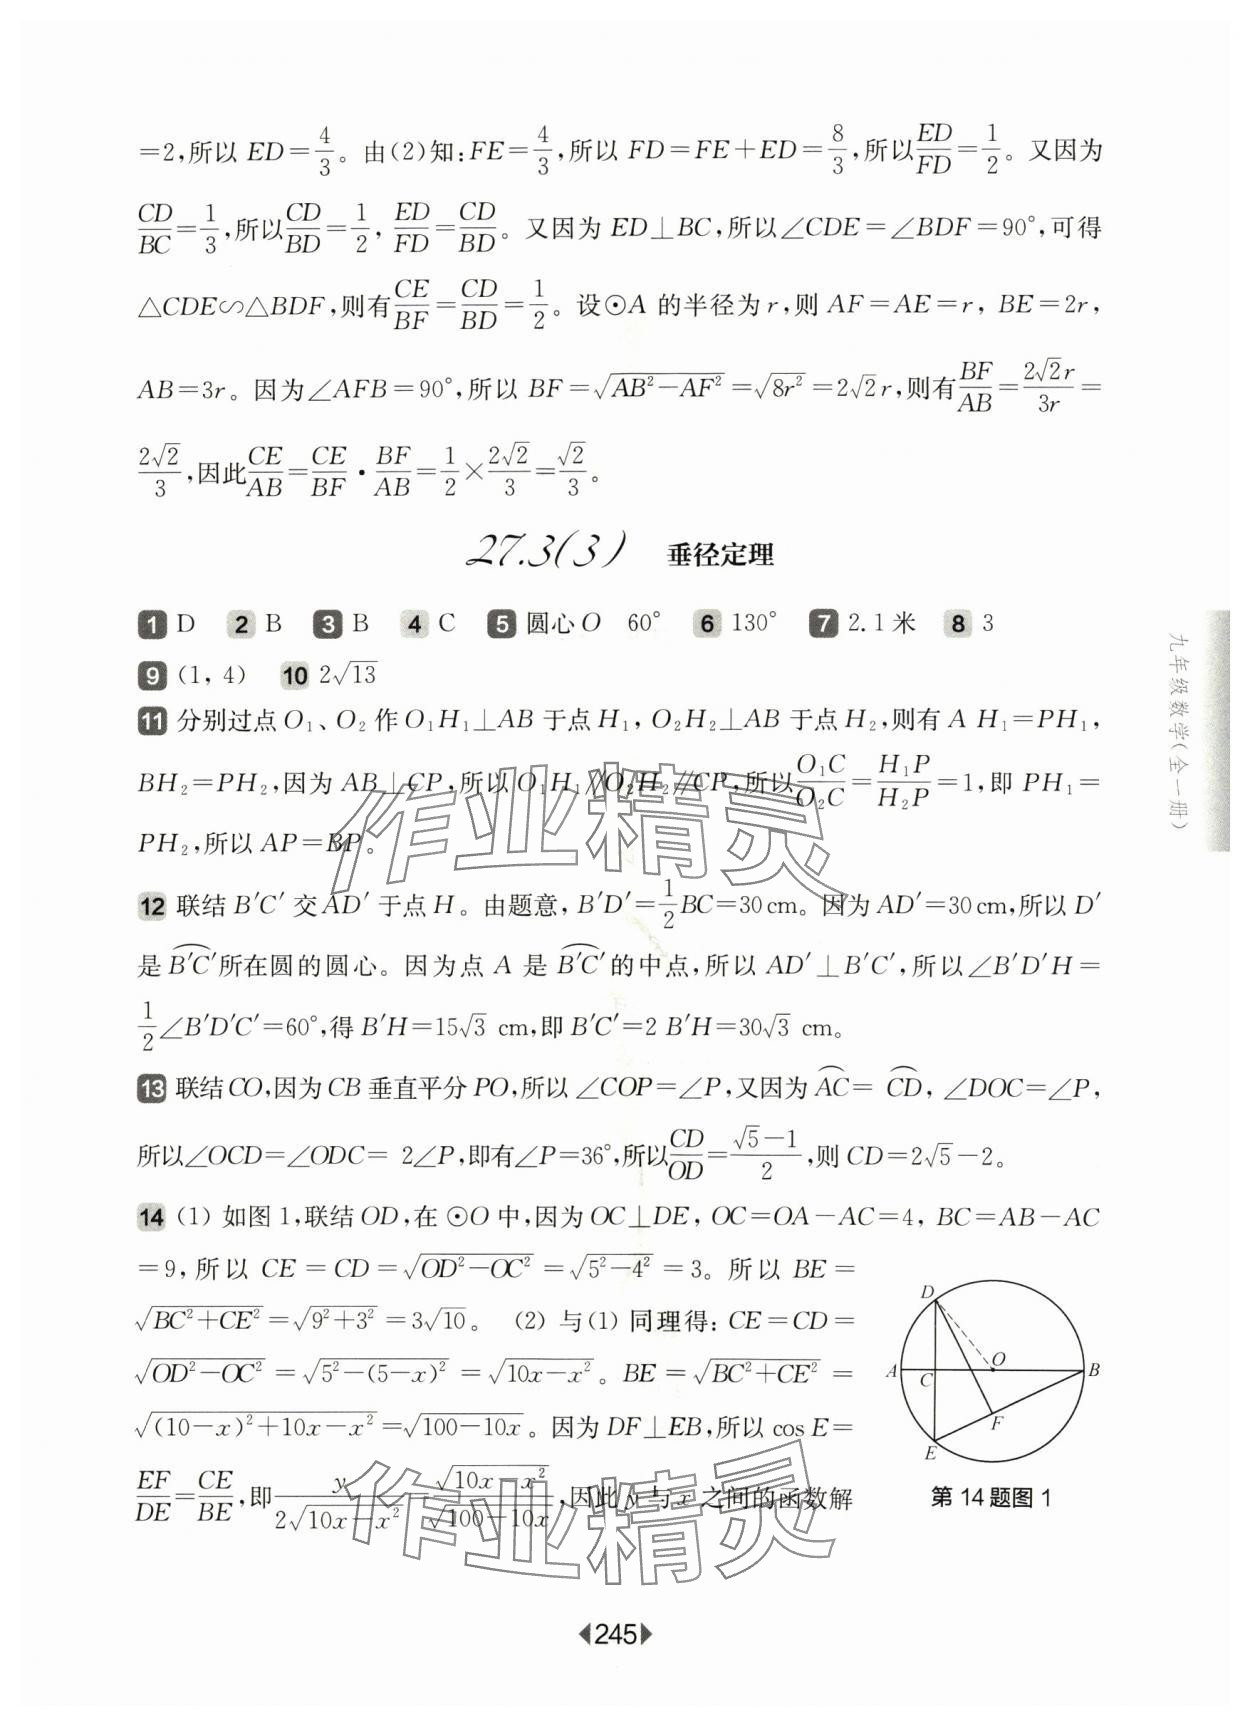 =2,所以 ED=4/3。由(2)知:FE=4/3,所以 FD=FE+ED=8/3,所以ED/FD=1/2。又因为
CD/BC=1/3,所以CD/BD=1/2, ED/FD=CD/BD。又因为 ED⊥BC,所以∠CDE=∠BDF=90°,可得
△CDE∽△BDF,则有CE/BF=CD/BD=1/2。设⊙A 的半径为r,则 AF=AE=r, BE=2r,
AB=3r。因为∠AFB=90°,所以 BF=√(AB²-AF²)=√(8r²)=2√2r,则有BF/AB=2√2r/3r=
2√2/3,因此CE/AB=CE/BF·BF/AB=1/2×2√2/3=√2/3。
27.3(3) 垂径定理
1 D 2 B 3 B 4 C 5 圆心O 60° 6 130° 7 2.1米 8 3
9 (1, 4) 10 2√13
11 分别过点O₁、O₂作O₁H₁⊥AB于点H₁, O₂H₂⊥AB于点H₂,则有A H₁=PH₁,
BH₂=PH₂,因为 AB⊥CP,所以O₁H₁∥O₂H₂∥CP,所以O₁C/O₂C=H₁P/H₂P=1,即 PH₁=
PH₂,所以 AP=BP。
12 联结 B′C′ 交 AD′ 于点 H。由题意, B′D′=1/2BC=30 cm。因为 AD′=30 cm,所以 D′
是B′C′所在圆的圆心。因为点 A 是 B′C′的中点,所以 AD′⊥B′C′,所以∠B′D′H=
1/2∠B′D′C′=60°,得 B′H=15√3 cm,即B′C′=2 B′H=30√3 cm。
13 联结CO,因为 CB 垂直平分 PO,所以 ∠COP=∠P,又因为 AC= CD, ∠DOC=∠P,
所以∠OCD=∠ODC= 2∠P,即有∠P=36°,所以CD/OD=(√5-1)/2,则 CD=2√5-2。
14 (1) 如图 1,联结 OD,在 ⊙O 中,因为 OC⊥DE, OC=OA-AC=4, BC=AB-AC
=9,所以 CE=CD=√(OD²-OC²)=√(5²-4²)=3。所以 BE=
√(BC²+CE²)=√(9²+3²)=3√10。 (2) 与(1) 同理得: CE=CD=
√(OD²-OC²)=√(5²-(5-x)²)=√(10x-x²)。BE=√(BC²+CE²)=
√((10-x)²+10x-x²)=√(100-10x)。因为 DF⊥EB,所以 cos E=
EF/DE=CE/BE,即y/(2√(10x-x²))=√(10x-x²)/√(100-10x),因此 y 与 x 之间的函数解
D
A
C
O
B
F
E
第14题图1
九年级数学(全一册)
作业精灵
作业精灵
245